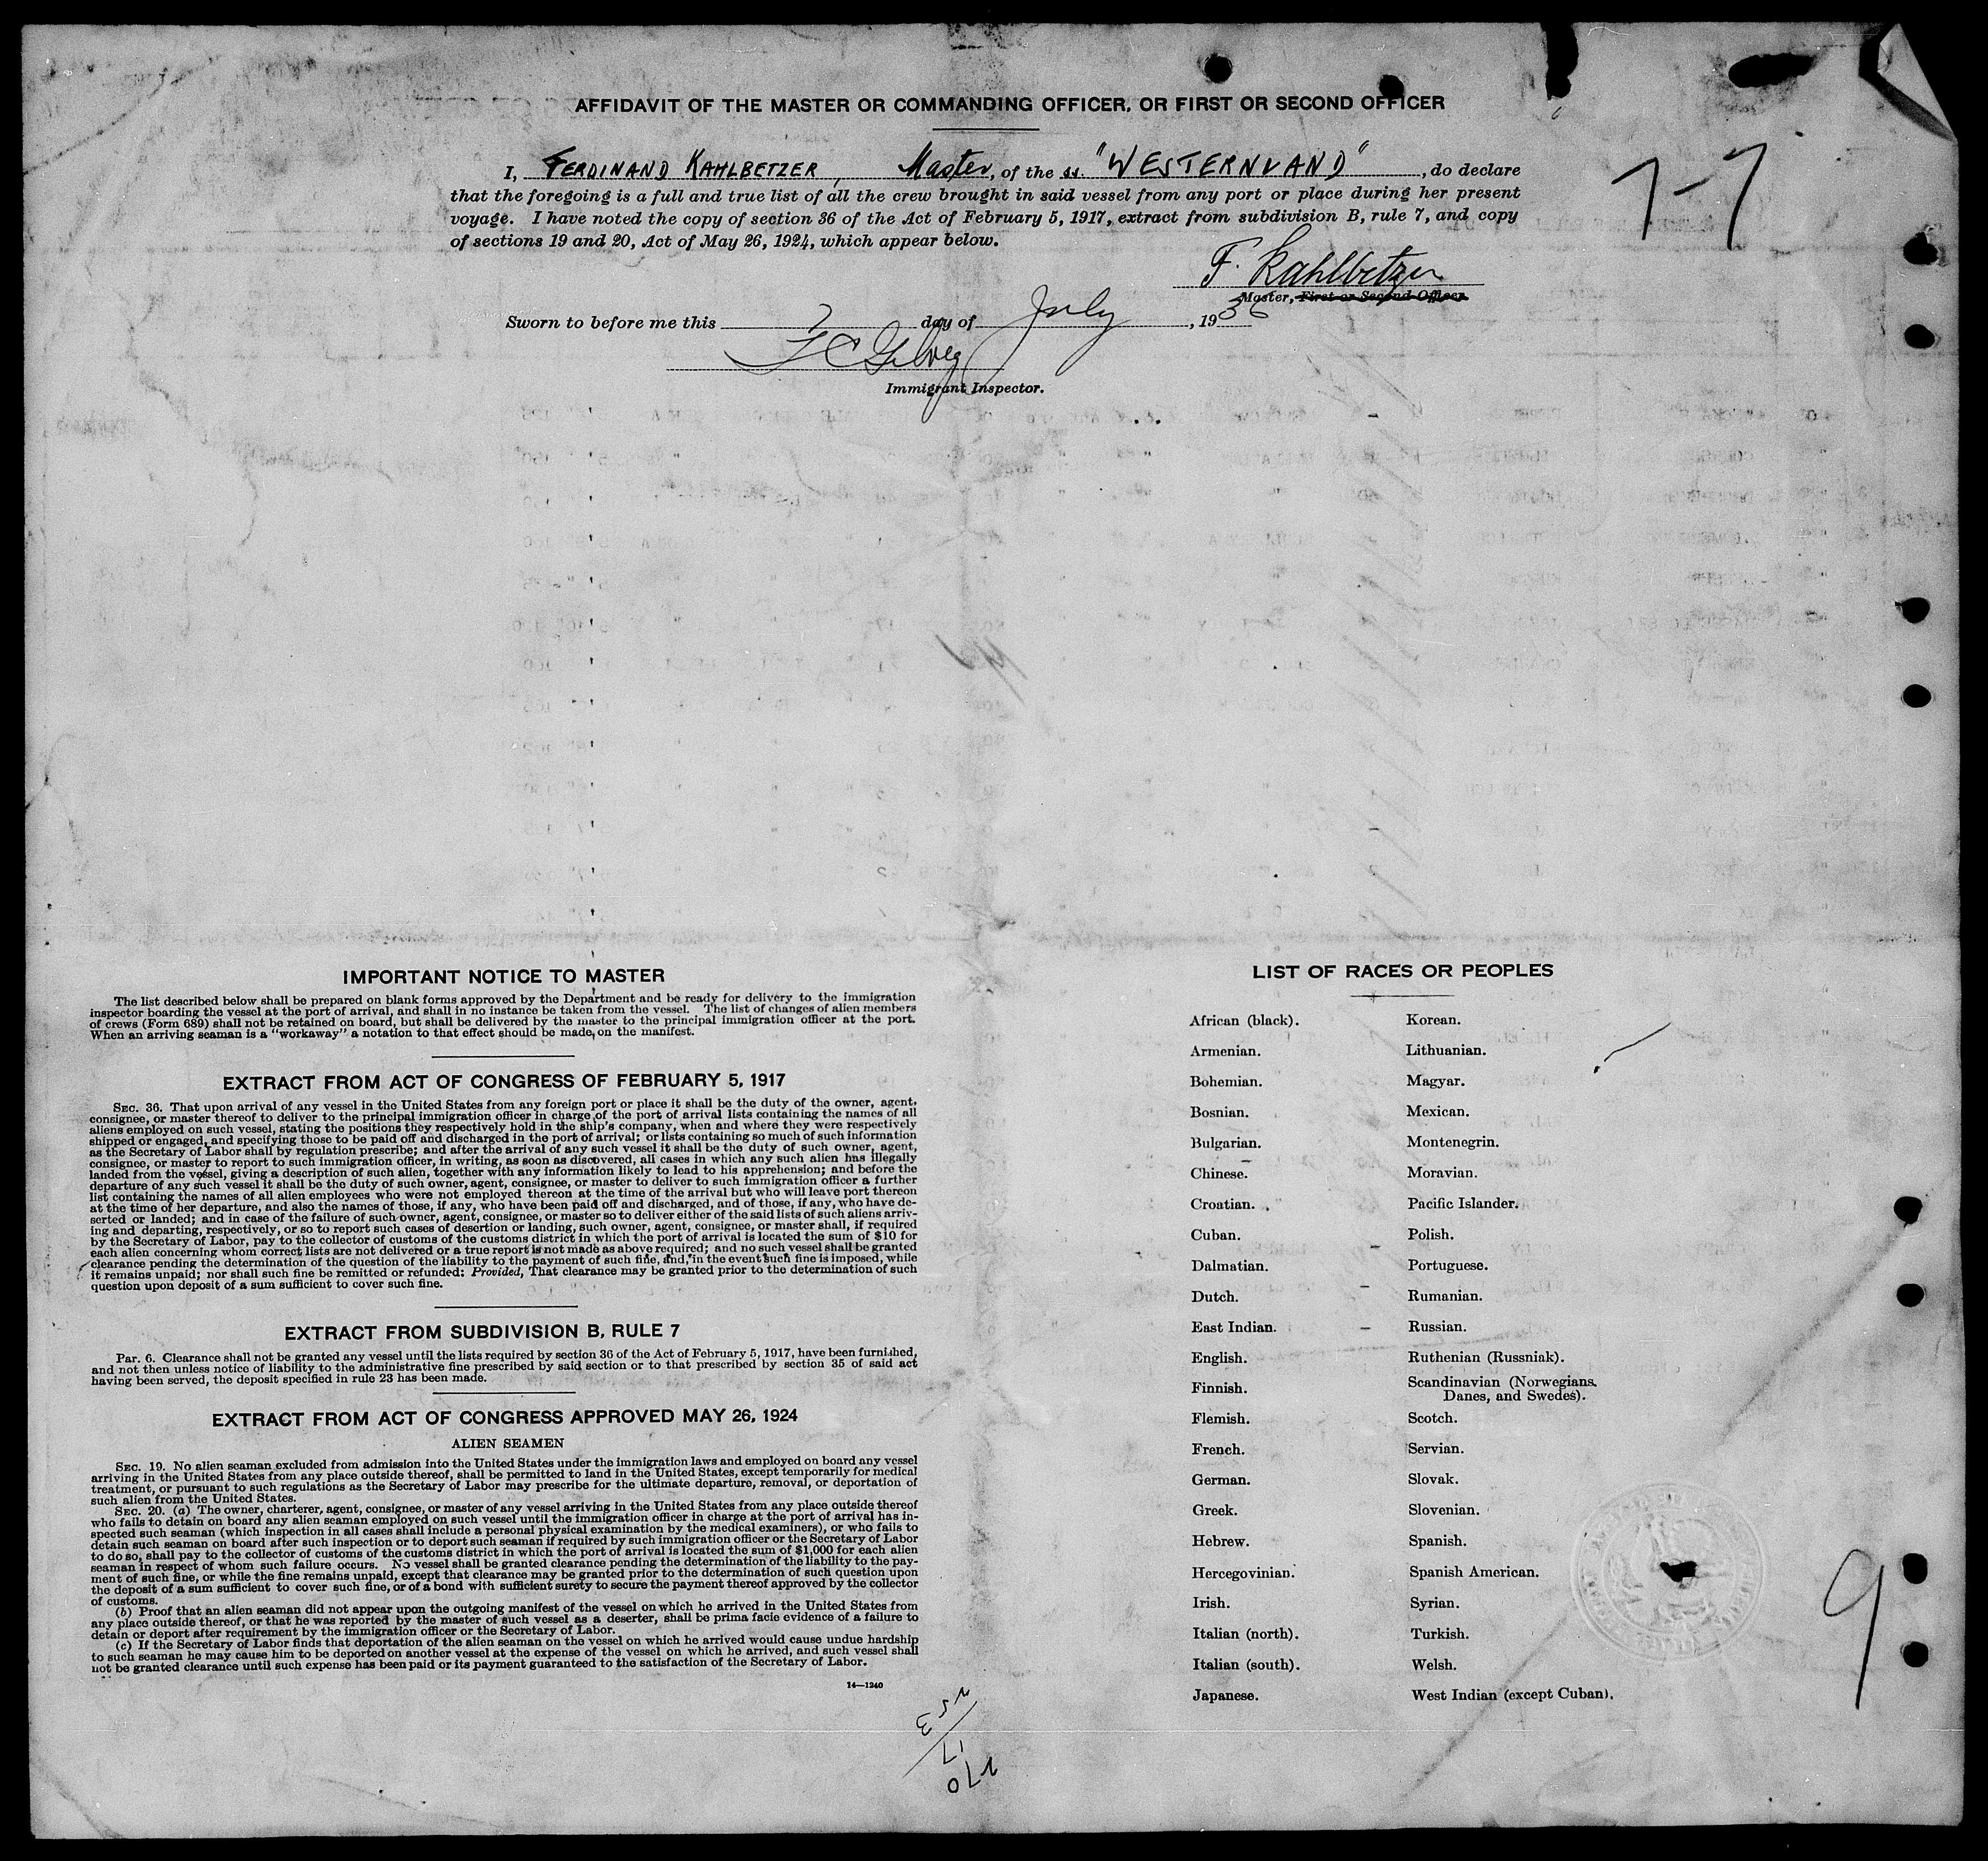 AFFIDAVIT OF THE MASTER OR COMMANDING OFFICER, OR FIRST OR SECOND OFFICER
I, FERDINAND KAHLBETZER, Master, of the ss. "WESTERNLAND", do declare
that the foregoing is a full and true list of all the crew brought in said vessel from any port or place during her present
voyage. I have noted the copy of section 36 of the Act of February 5, 1917, extract from subdivision B, rule 7, and copy
of sections 19 and 20, Act of May 26, 1924, which appear below.
7-7
F. Kahlbetzer
Master, First or Second Officer.
Sworn to before me this 7 day of July, 1936
Immigrant Inspector.
IMPORTANT NOTICE TO MASTER
The list described below shall be prepared on blank forms approved by the Department and be ready for delivery to the immigration
inspector boarding the vessel at the port of arrival, and shall in no instance be taken from the vessel. The list of changes of alien members
of crews (Form 689) shall not be retained on board, but shall be delivered by the master to the principal immigration officer at the port.
When an arriving seaman is a "workaway" a notation to that effect should be made on the manifest.
EXTRACT FROM ACT OF CONGRESS OF FEBRUARY 5, 1917
SEC. 36. That upon arrival of any vessel in the United States from any foreign port or place it shall be the duty of the owner, agent,
consignee, or master thereof to deliver to the principal immigration officer in charge of the port of arrival lists containing the names of all
aliens employed on such vessel, stating the positions they respectively hold in the ship's company, when and where they were respectively
shipped or engaged, and specifying those to be paid off and discharged in the port of arrival; or lists containing so much of such information
as the Secretary of Labor shall by regulation prescribe; and after the arrival of any such vessel it shall be the duty of such owner, agent,
consignee, or master to report to such immigration officer, in writing, as soon as discovered, all cases in which any such alien has illegally
landed from the vessel, giving a description of such alien, together with any information likely to lead to his apprehension; and before the
departure of any such vessel it shall be the duty of such owner, agent, consignee, or master to deliver to such immigration officer a further
list containing the names of all alien employees who were not employed thereon at the time of the arrival but who will leave port thereon
at the time of her departure, and also the names of those, if any, who have been paid off and discharged, and of those, if any, who have de-
serted or landed; and in case of the failure of such owner, agent, consignee, or master so to deliver either of the said lists of such aliens arriv-
ing and departing, respectively, or so to report such cases of desertion or landing, such owner, agent, consignee, or master shall, if required
by the Secretary of Labor, pay to the collector of customs of the customs district in which the port of arrival is located the sum of $10 for
each alien concerning whom correct lists are not delivered or a true report is not made as above required; and no such vessel shall be granted
clearance pending the determination of the question of the liability to the payment of such fine, and, in the event such fine is imposed, while
it remains unpaid; nor shall such fine be remitted or refunded: Provided, That clearance may be granted prior to the determination of such
question upon deposit of a sum sufficient to cover such fine.
EXTRACT FROM SUBDIVISION B, RULE 7
Par. 6. Clearance shall not be granted any vessel until the lists required by section 36 of the Act of February 5, 1917, have been furnished,
and not then unless notice of liability to the administrative fine prescribed by said section or to that prescribed by section 35 of said act
having been served, the deposit specified in rule 23 has been made.
EXTRACT FROM ACT OF CONGRESS APPROVED MAY 26, 1924
ALIEN SEAMEN
SEC. 19. No alien seaman excluded from admission into the United States under the immigration laws and employed on board any vessel
arriving in the United States from any place outside thereof, shall be permitted to land in the United States, except temporarily for medical
treatment, or pursuant to such regulations as the Secretary of Labor may prescribe for the ultimate departure, removal, or deportation of
such alien from the United States.
SEC. 20. (a) The owner, charterer, agent, consignee, or master of any vessel arriving in the United States from any place outside thereof
who fails to detain on board any alien seaman employed on such vessel until the immigration officer in charge at the port of arrival has in-
spected such seaman (which inspection in all cases shall include a personal physical examination by the medical examiners), or who fails to
detain such seaman on board after such inspection or to deport such seaman if required by such immigration officer or the Secretary of Labor
to do so, shall pay to the collector of customs of the customs district in which the port of arrival is located the sum of $1,000 for each alien
seaman in respect of whom such failure occurs. No vessel shall be granted clearance pending the determination of the liability to the pay-
ment of such fine, or while the fine remains unpaid, except that clearance may be granted prior to the determination of such question upon
the deposit of a sum sufficient to cover such fine, or of a bond with sufficient surety to secure the payment thereof approved by the collector
of customs.
(b) Proof that an alien seaman did not appear upon the outgoing manifest of the vessel on which he arrived in the United States from
any place outside thereof, or that he was reported by the master of such vessel as a deserter, shall be prima facie evidence of a failure to
detain or deport after requirement by the immigration officer or the Secretary of Labor.
(c) If the Secretary of Labor finds that deportation of the alien seaman on the vessel on which he arrived would cause undue hardship
to such seaman he may cause him to be deported on another vessel at the expense of the vessel on which he arrived, and such vessel shall
not be granted clearance until such expense has been paid or its payment guaranteed to the satisfaction of the Secretary of Labor.
14—1240
253
17
270
LIST OF RACES OR PEOPLES
African (black).
Armenian.
Bohemian.
Bosnian.
Bulgarian.
Chinese.
Croatian.
Cuban.
Dalmatian.
Dutch.
East Indian.
English.
Finnish.
Flemish.
French.
German.
Greek.
Hebrew.
Hercegovinian.
Irish.
Italian (north).
Italian (south).
Japanese.
Korean.
Lithuanian.
Magyar.
Mexican.
Montenegrin.
Moravian.
Pacific Islander.
Polish.
Portuguese.
Rumanian.
Russian.
Ruthenian (Russniak).
Scandinavian (Norwegians,
Danes, and Swedes).
Scotch.
Servian.
Slovak.
Slovenian.
Spanish.
Spanish American.
Syrian.
Turkish.
Welsh.
West Indian (except Cuban).
9